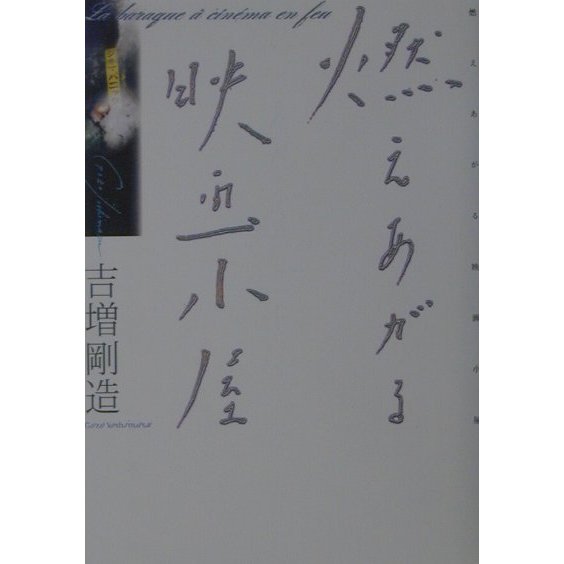 La baraque à cinéma en feu
燃えあがる
映画小屋
燃えあがる映画小屋
吉増剛造